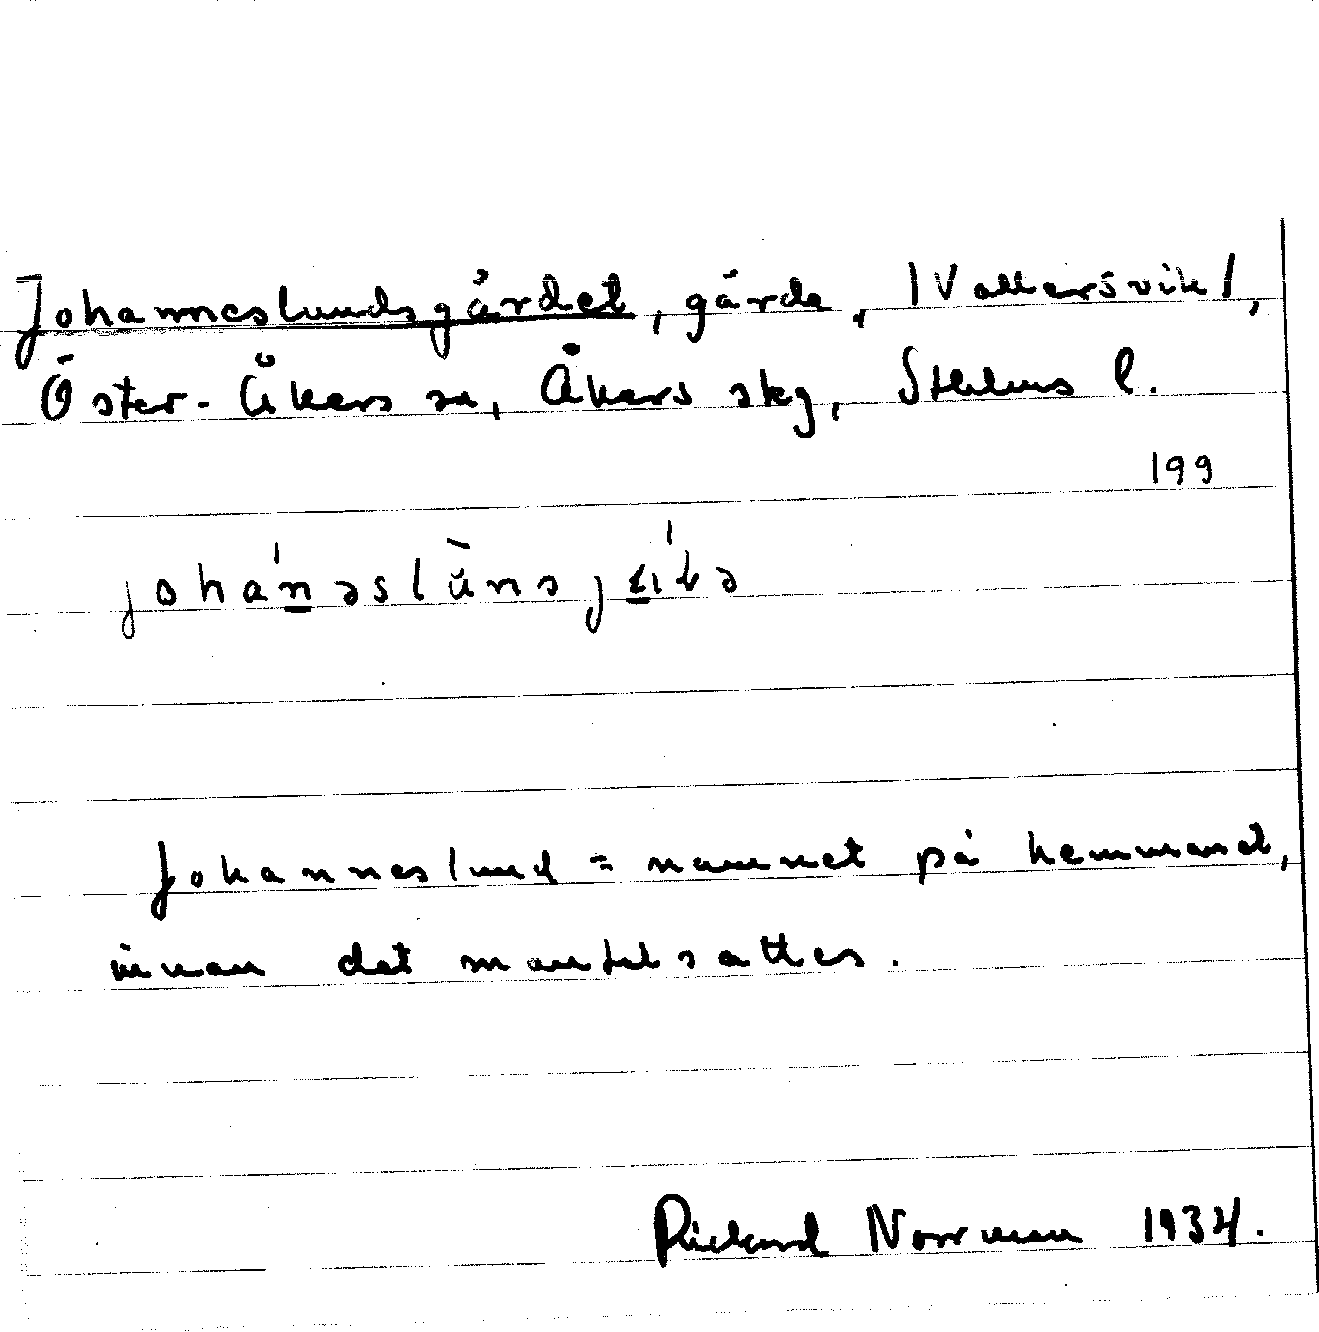 Johanneslundsgärdet, gärde, /Valhersvik/,
Öster-Åkers sn, Åkers skg, Sthlms l.
199
johánəslùns
Johanneslund = namnet på hemmanet,
innan det mantelsattes.
Rickard Norrman 1934.